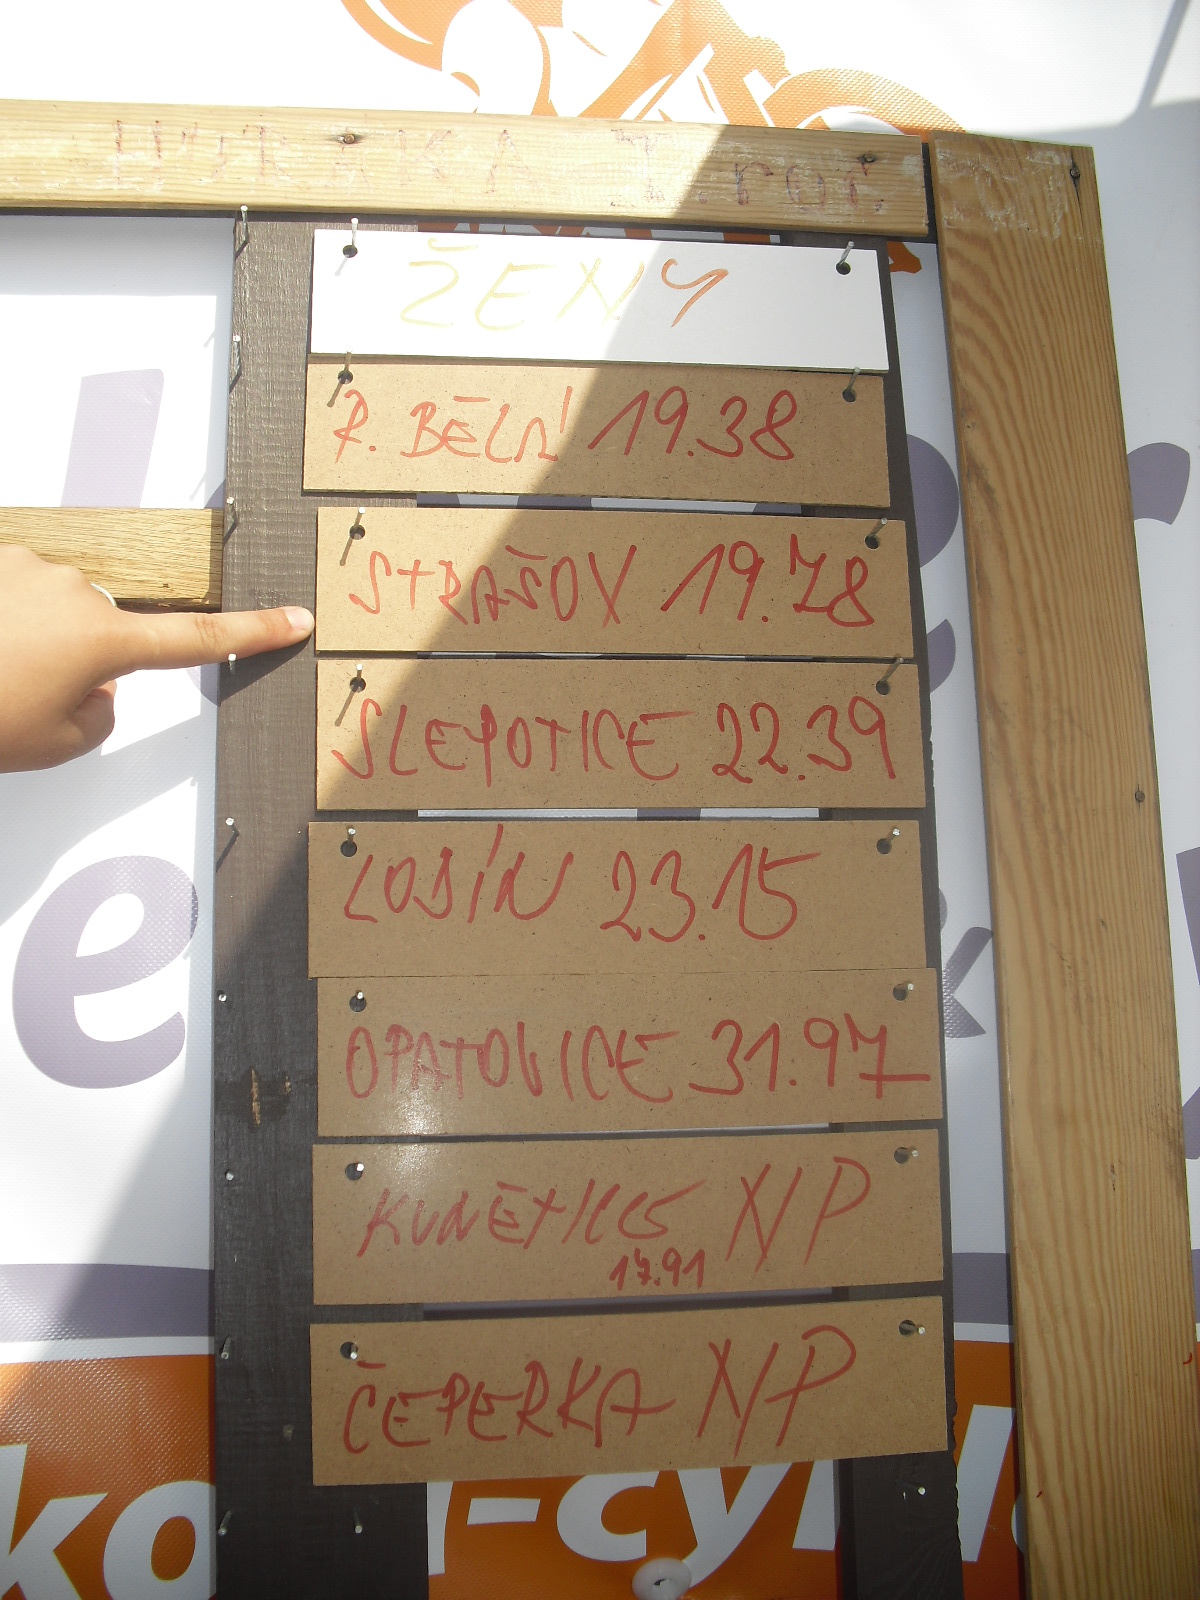 HURÁKA I. roč.
ŽENY
R. BĚLÁ 19.38
STRAŠOV 19.78
SLEPOTICE 22.39
LODÍN 23.15
OPATOVICE 31.97
KUNĚTICE N/P
17.91
ČEPERKA N/P